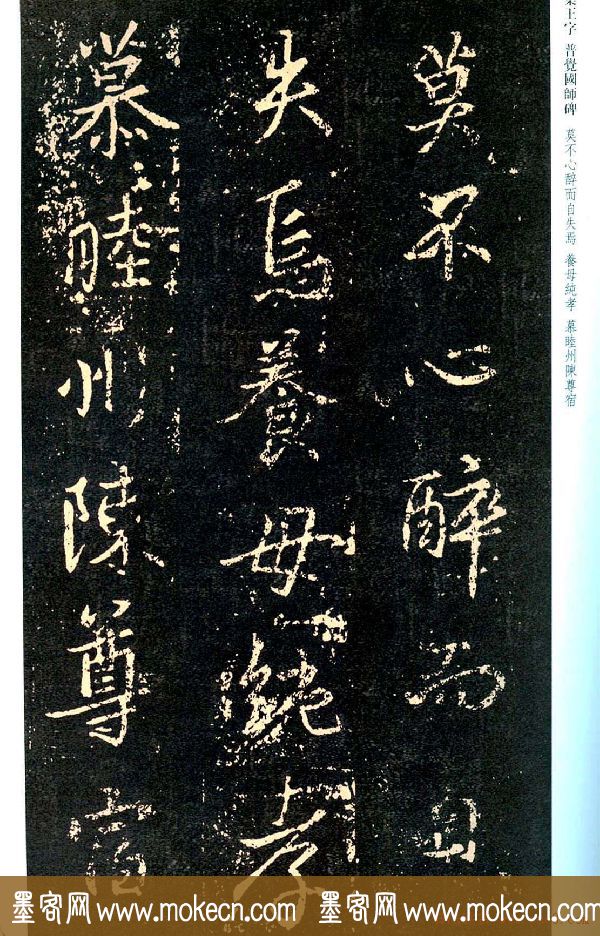 集王字 普覺國師碑 莫不心醉而自失焉 養母純孝 慕睦州陳尊宿
莫不心醉而自
失焉養母純孝
慕睦州陳尊宿
墨客网 www.mokecn.com 墨客网 www.mokecn.com